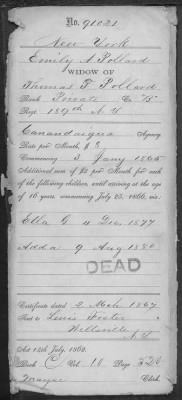 No. 91021
New York
Emily A. Pollard
WIDOW OF
Thomas F. Pollard
Rank Private Co. "B"
Reg. 189th N.Y.
Canandaigua Agency
Rate per Month, $8
Commencing 3 Jany 1865
Additional sum of $2 per Month for each
of the following children, until arriving at the age
of 16 years, commencing July 25, 1866, viz:
Ella G 4 Dec, 1877
Adda 9 Aug 1880
DEAD
Certificate dated 2 Mch 1867
Sent to Lewis Foster
Wellsville
N.Y.
Act 14th July, 1862.
Book Vol. Page
Clerk.